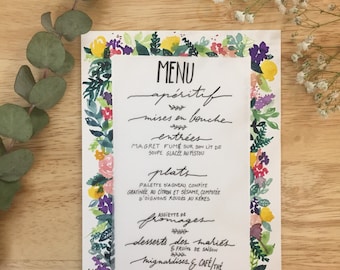 MENU
apéritif
mises en bouche
entrées
MAGRET FUMÉ SUR SON LIT DE
SOUPE GLACÉE AU PISTOU
plats
PALETTE D'AGNEAU CONFITE
GRATINÉE AU CITRON ET SÉSAME, COMPOTÉE
D'OIGNONS ROUGES AU XÉRÈS
ASSIETTE DE
fromages
desserts des mariés
& FUSION DE SAISON
mignardises & CAFÉ/THÉ